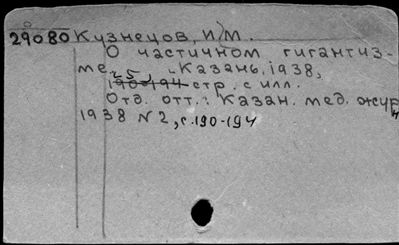 29080 Кузнецов, И.М.
О частичном гигантиз-
ме. Казань, 1938,
190-194 стр. с илл.
Отд. отт.: Казан. мед. журн
1938 N2, с.190-194